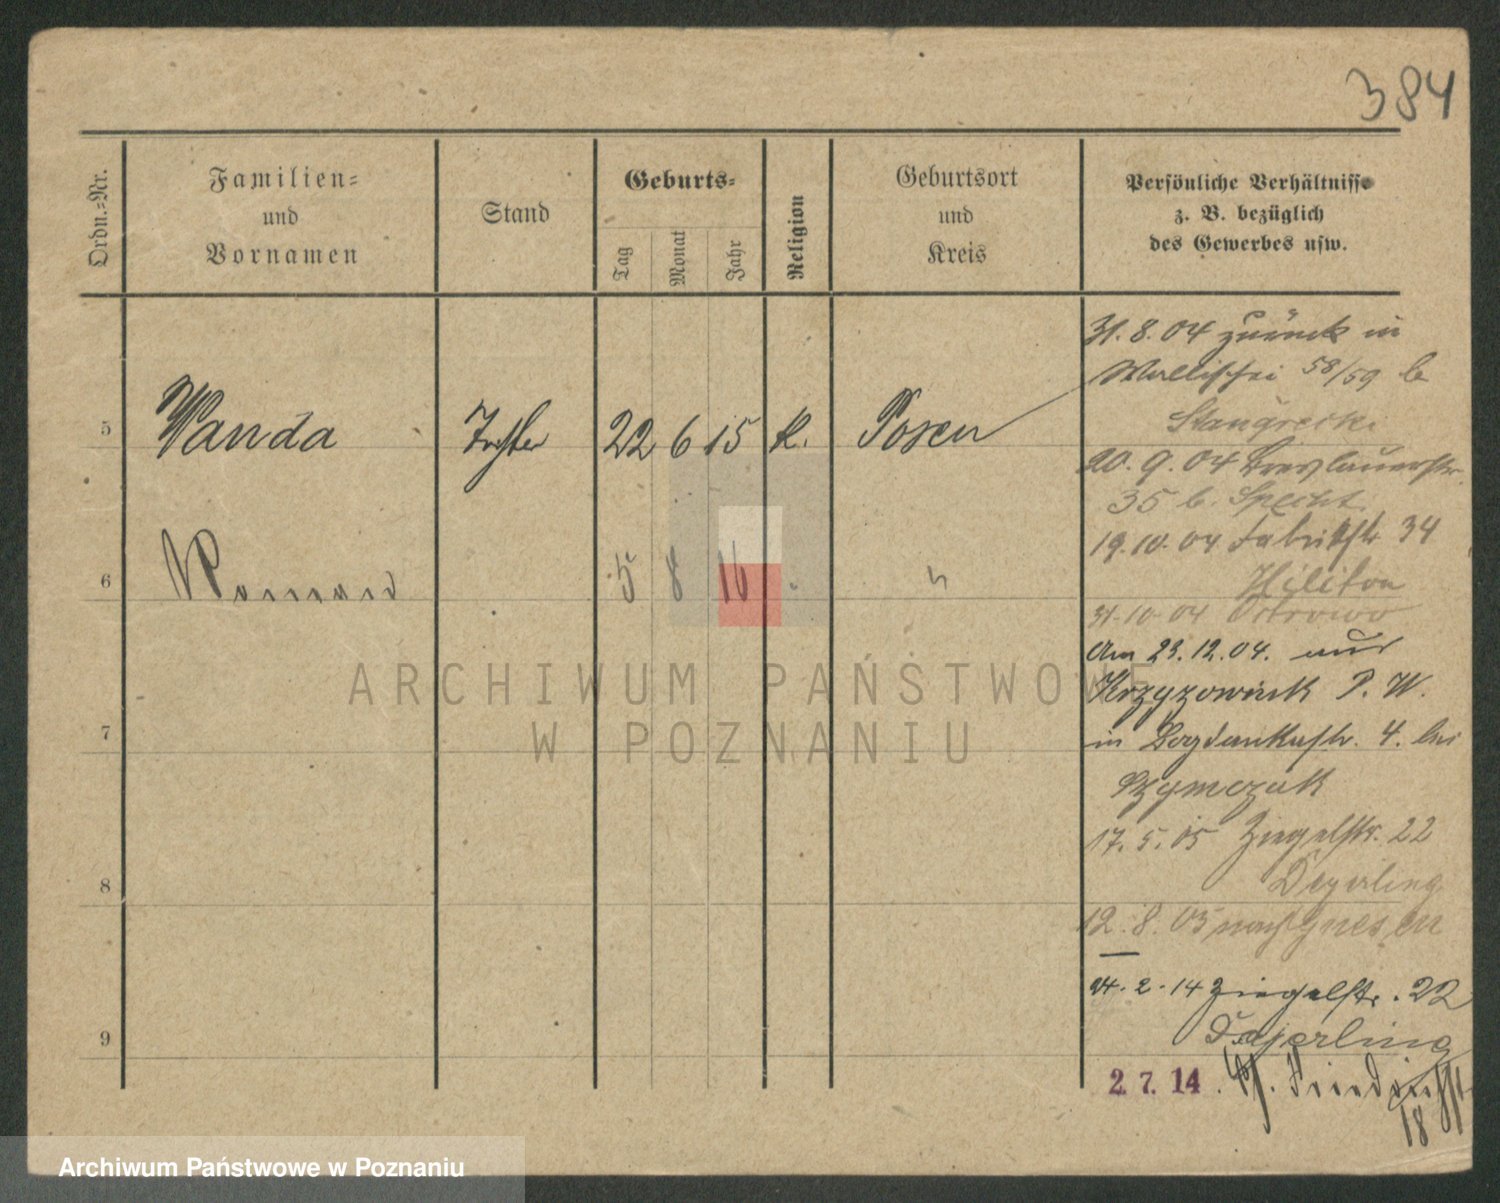 384
Ordn.-Nr.
Familien-
und
Vornamen
Stand
Geburts-
Tag
Monat
Jahr
Religion
Geburtsort
und
Kreis
Persönliche Verhältnisse
z. B. bezüglich
des Gewerbes usw.
5 Wanda Tochter 22 6 15 k. Posen
6 5 8 16 "
7
8
9
31.8.04 zurück in
Wallischei 58/59 b
20.9.04 Breslauerstr.
35 b. Specht
19.10.04 Fabrikstr. 34
31.10.04 Ostrowo
Am 23.12.04. aus
P. W.
in Bogdankastr. 4. bei
Szymczak
17.5.05 Ziegelstr. 22
Deyerling
12.8.05 nach Gnesen
24.2.14 Ziegelstr. 22
2.7.14.
18
ARCHIWUM PAŃSTWOWE
W POZNANIU
Archiwum Państwowe w Poznaniu